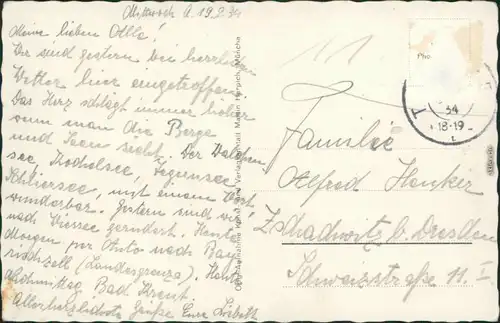 Mittwoch d. 19.2.34
Meine lieben Alle!
Wir sind gestern bei herrlichem
Wetter hier eingetroffen.
Das Herz schlägt immer höher
wenn man die Berge
und Seen sieht. Der Walchen-
see, Kochelsee, Tegernsee,
Schliersee, mit einem Wort
wunderbar. Gestern sind wir
nach Wiessee gerudert. Heute
Morgen per Auto nach Bay-
rischzell (Landesgrenze). Heute
Nachmittag Bad Kreut.
Allerherzlichste Grüße Eure Lisbeth
Familie
Alfred Henker
Zschachwitz b. Dresden
Schweizstraße 11 I
Pho
34
18-19